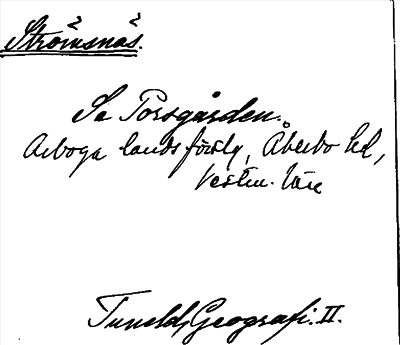 Strömsnäs.
Se Porsgården.
Arboga landsförslg, Åkerbo hd,
Vestm. län
Tuneld, Geografi. II.